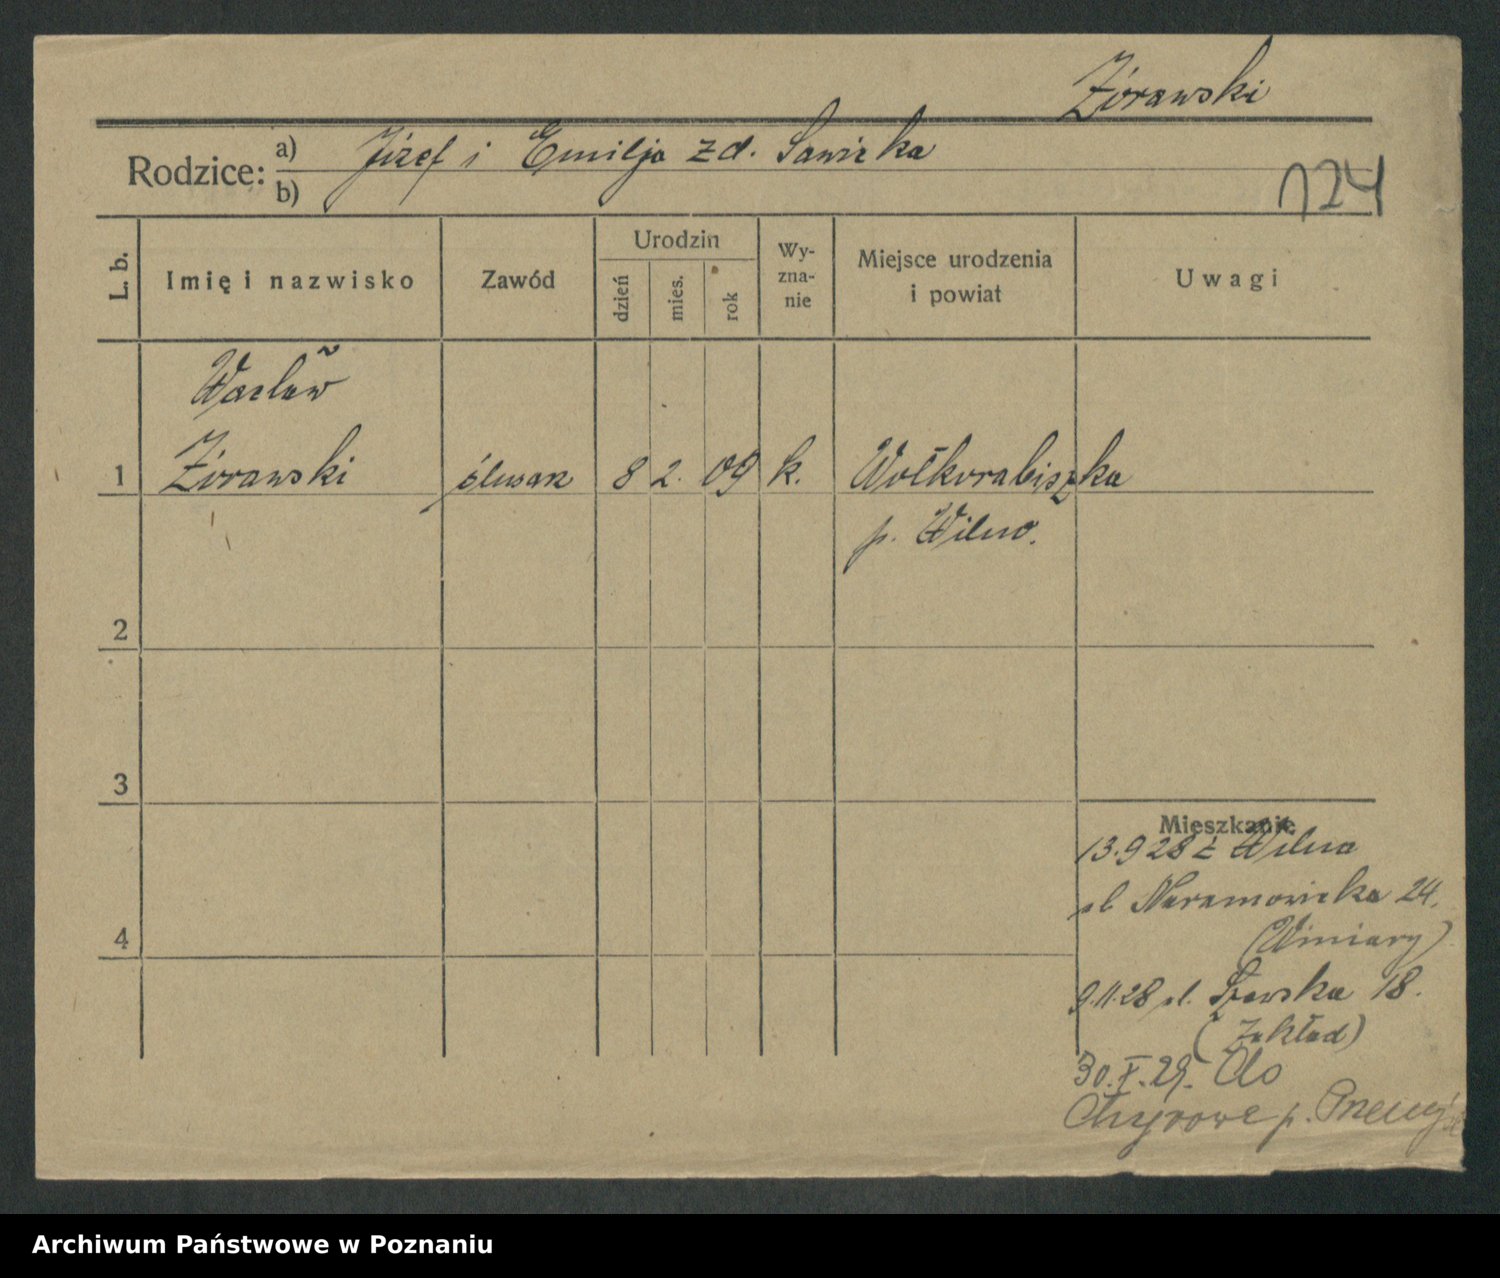 Żórawski
Rodzice: a) Józef i Emilja zd. Sawicka
b)
124
L. b.
Imię i nazwisko
Zawód
Urodzin
dzień
mies.
rok
Wy-
zna-
nie
Miejsce urodzenia
i powiat
Uwagi
Wacław
1 Żórawski ślusarz 8 2. 09 k. Wołkorabiszka
p. Wilno.
2
3
Mieszkanie
13.9 28 z Wilna
ul Naramowicka 24.
(Winiary)
4
9.11.28 ul. Szewska 18.
(Zakład)
30.X.29. Do
Chyrowa p.
Archiwum Państwowe w Poznaniu